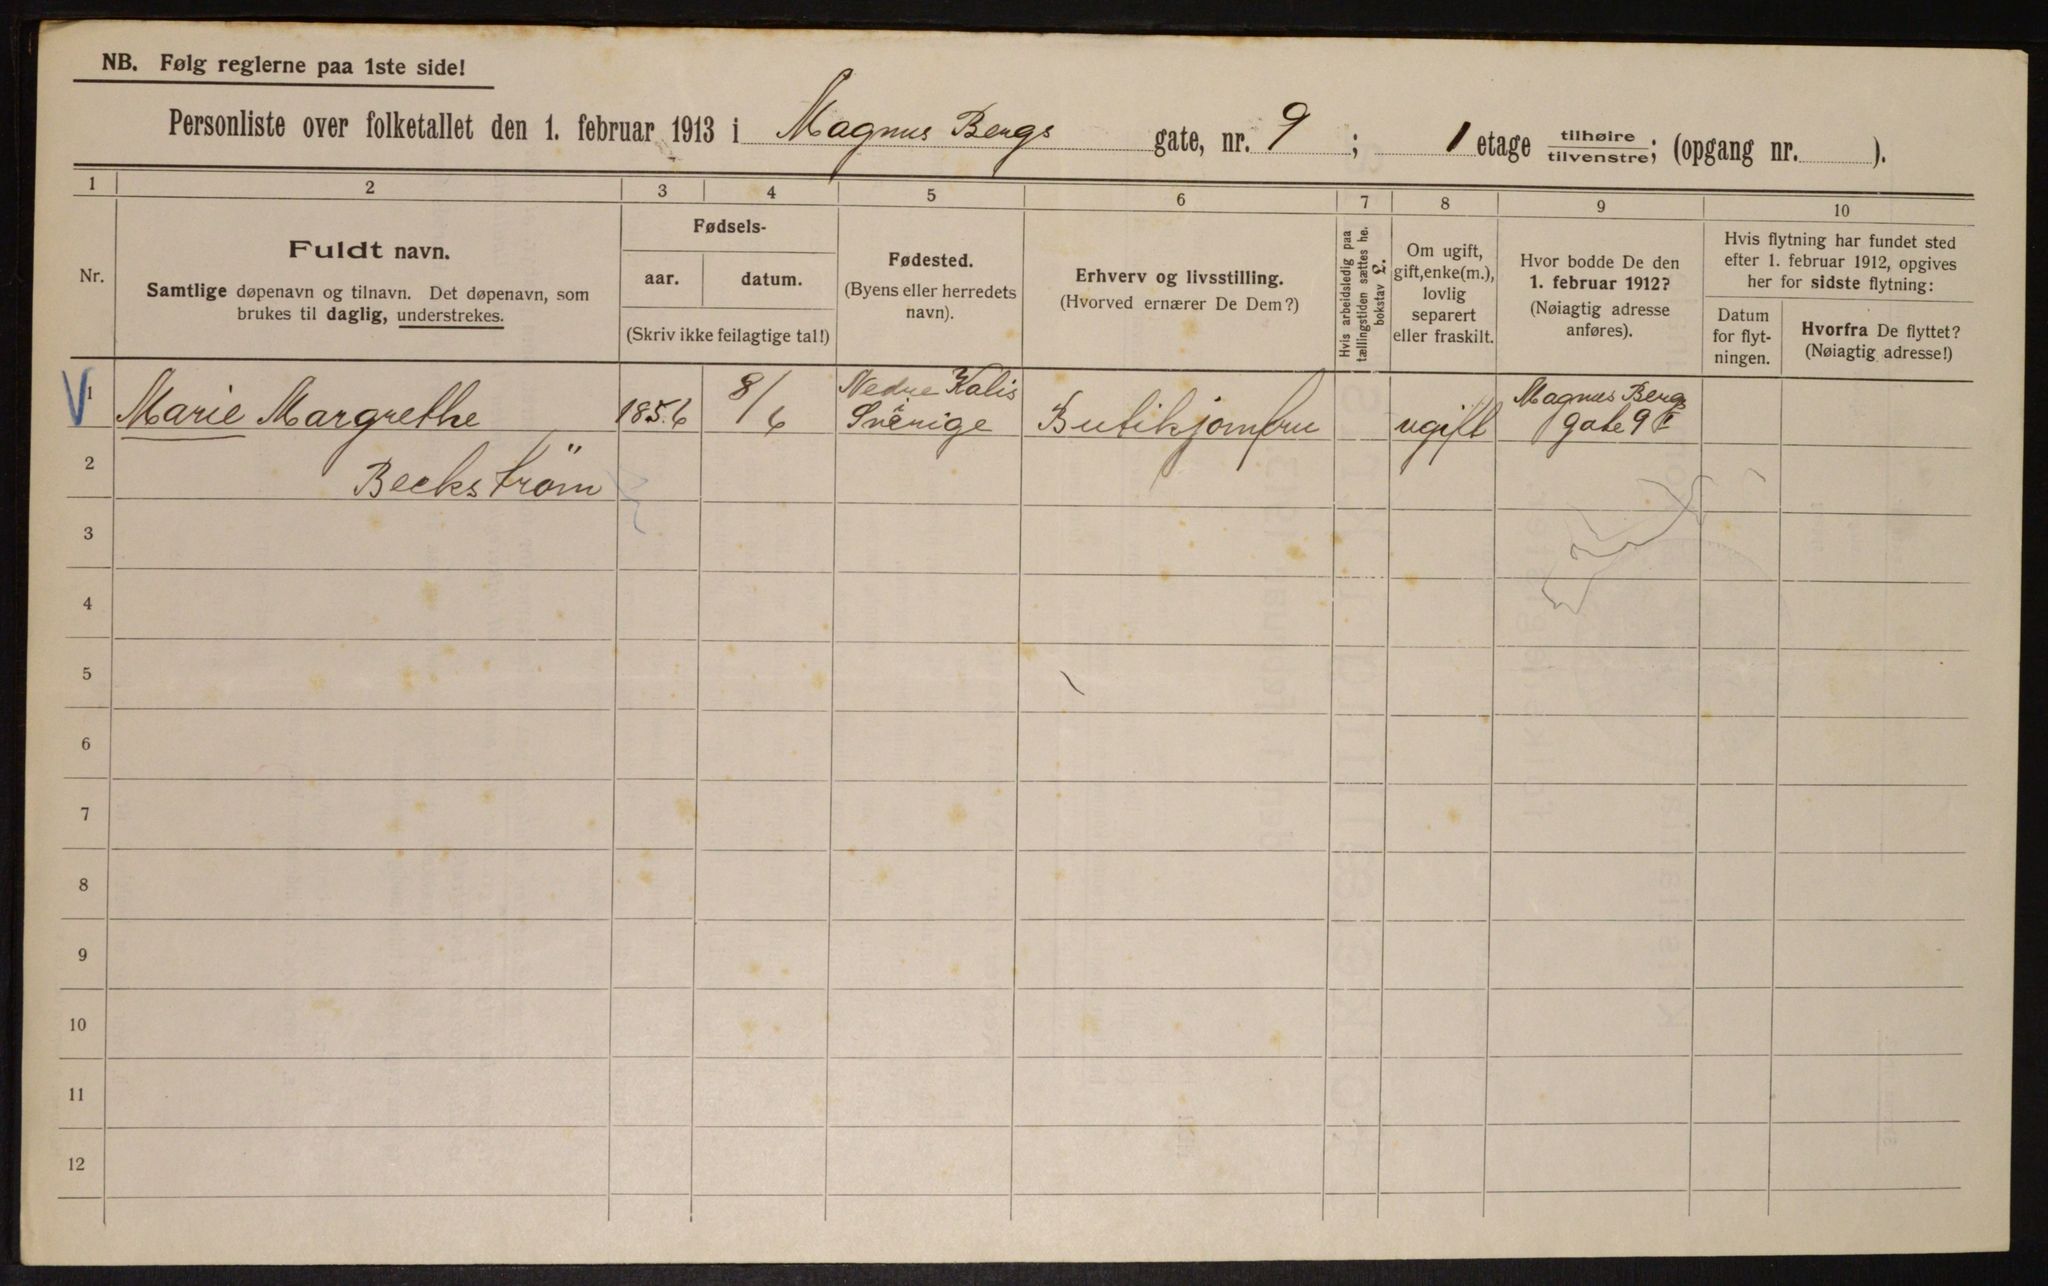 NB. Følg reglerne paa 1ste side!
Personliste over folketallet den 1. februar 1913 i Magnus Bergs gate, nr. 9; 1 etage tilhøire/tilvenstre; (opgang nr. ).
1 2 3 4 5 6 7 8 9 10
Nr.
Fuldt navn.
Samtlige døpenavn og tilnavn. Det døpenavn, som
brukes til daglig, understrekes.
Fødsels-
aar. datum.
(Skriv ikke feilagtige tal!)
Fødested.
(Byens eller herredets
navn).
Erhverv og livsstilling.
(Hvorved ernærer De Dem?)
Hvis arbeidsledig paa
tællingstiden sættes he.
bokstav L.
Om ugift,
gift, enke(m.),
lovlig
separert
eller fraskilt.
Hvor bodde De den
1. februar 1912?
(Nøiagtig adresse
anføres).
Hvis flytning har fundet sted
efter 1. februar 1912, opgives
her for sidste flytning:
Datum
for flyt-
ningen.
Hvorfra De flyttet?
(Nøiagtig adresse!)
Nedre Kalis Magnus Berg
1 Marie Margrethe 1856 8/6 i Sverige Butikjomfru ugift gate 9 I
2 Beckstrøm
3
4
5
6
7
8
9
10
11
12